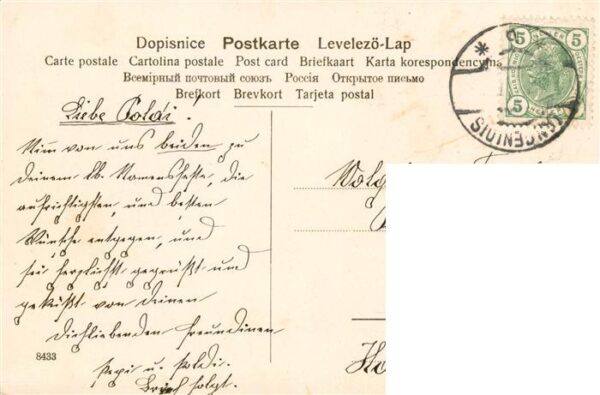 Dopisnice Postkarte Levelező-Lap
Carte postale Cartolina postale Post card Briefkaart Karta korespondencyjna
Всемірный почтовый союзъ Россія Открытое письмо
Brefkort Brevkort Tarjeta postal
5 5
5 5
LANGENLOIS
Liebe Poldi!
Nimm von uns beiden zu
deinem lb. Namensfeste, die
aufrichtigsten, und besten
Wünsche entgegen, und
sei herzlichst gegrüßt und
geküßt von deinen
dichliebenden Freundinen
Pepi u. Poldi.
Brief folgt.
8433